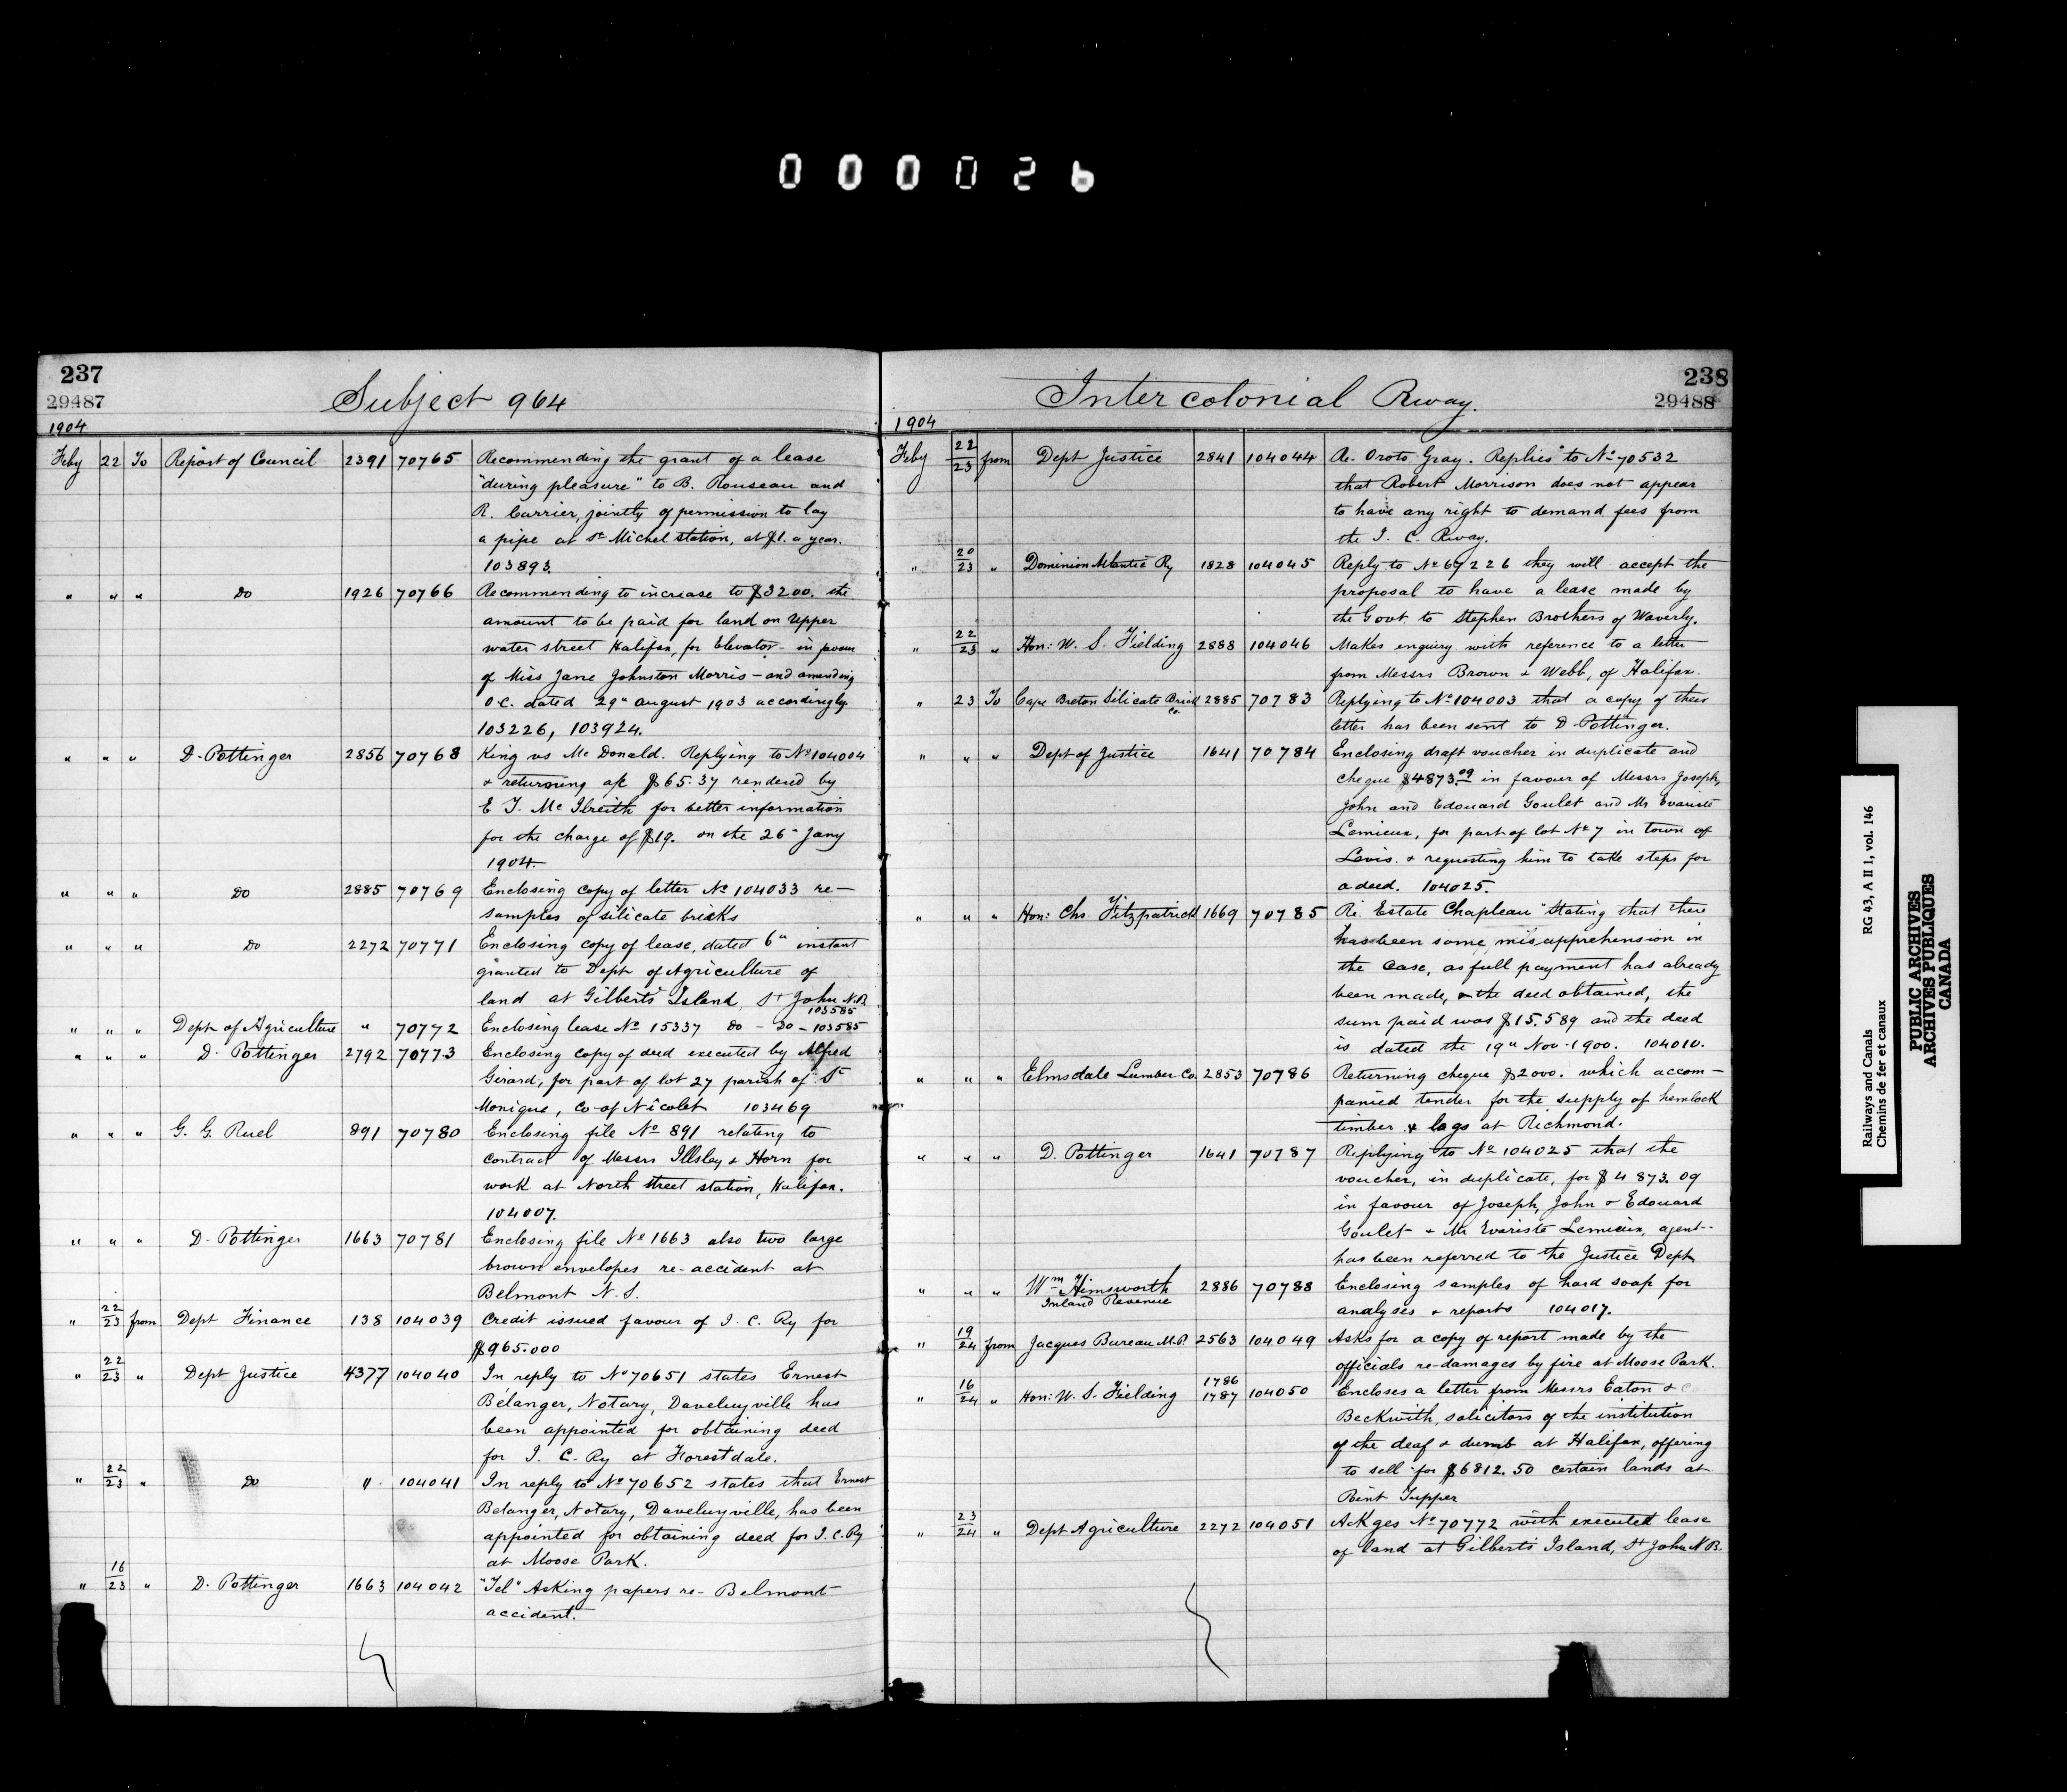 000026
237
29487
Subject 964
1904
Feby 22 To Report of Council 2391 70765 Recommending the grant of a lease
"during pleasure" to B. Rouseau and
R. Carrier, jointly of permission to lay
a pipe at St Michel station, at $1. a year.
103893.
" " " Do 1926 70766 Recommending to increase to $3200. the
amount to be paid for land on Upper
water street Halifax, for Elevator - in favour
of Miss Jane Johnston Morris - and amending
O.C. dated 29" august 1903 accordingly.
103226, 103924.
" " " D. Pottinger 2856 70768 King vs McDonald. Replying to No 104004
& returning a/c $65.37 rendered by
E T. McIlreith for better information
for the charge of $19. on the 26" Jany
1904.
" " " Do 2885 70769 Enclosing copy of letter No 104033 re-
samples of silicate bricks
" " " Do 2272 70771 Enclosing copy of lease, dated 6" instant
granted to Dept of Agriculture of
land at Gilberts Island St John N.B.
103585
" " " Dept of Agriculture " 70772 Enclosing lease No 15337 do - do - 103585
" " " D. Pottinger 2792 70773 Enclosing copy of deed executed by Alfred
Girard, for part of lot 27 parish of St
Monique, Co of Nicolet 103469
" " " G. G. Ruel 891 70780 Enclosing file No 891 relating to
contract of Messrs Illsley & Horn for
work at North Street station, Halifax.
104007.
" " " D. Pottinger 1663 70781 Enclosing file No 1663 also two large
brown envelopes re-accident at
Belmont N.S.
" 22/23 from Dept Finance 138 104039 Credit issued favour of I. C. Ry for
$965.000
" 22/23 " Dept Justice 4377 104040 In reply to No 70651 states Ernest
Bélanger, Notary, Daveluyville has
been appointed for obtaining deed
for I. C. Ry at Forestdale.
" 22/23 " Do " 104041 In reply to No 70652 states that Ernest
Belanger, Notary, Daveluyville, has been
appointed for obtaining deed for I.C.Ry
at Moose Park.
" 16/23 " D. Pottinger 1663 104042 "Tel" Asking papers re- Belmont
accident.
238
29488
Intercolonial Rway.
1904
Feby 22/23 from Dept Justice 2841 104044 Re. Oroto Gray. Replies to No 70532
that Robert Morrison does not appear
to have any right to demand fees from
the I. C. Rway.
" 20/23 " Dominion Atlantic Ry 1828 104045 Reply to No 69226 they will accept the
proposal to have a lease made by
the Govt to Stephen Brothers of Waverly.
" 22/23 " Hon: W. S. Fielding 2888 104046 Makes enquiry with reference to a letter
from Messrs Brown & Webb, of Halifax.
" 23 To Cape Breton Silicate Brick Co. 2885 70783 Replying to No 104003 that a copy of their
letter has been sent to D. Pottinger.
" " " Dept of Justice 1641 70784 Enclosing draft voucher in duplicate and
cheque $4873.09 in favour of Messrs Joseph,
John and Edouard Goulet and Mr Evariste
Lemieux, for part of lot No 7 in town of
Levis. & requesting him to take steps for
a deed. 104025.
" " " Hon: Chs. Fitzpatrick 1669 70785 Re. Estate Chapleau "Stating that there
has been some misapprehension in
the Case, as full payment has already
been made, & the deed obtained, the
sum paid was $15.589 and the deed
is dated the 19" Nov. 1900. 104010.
" " " Elmsdale Lumber Co. 2853 70786 Returning cheque $2000. which accom-
panied tender for the supply of hemlock
timber & logs at Richmond.
" " " D. Pottinger 1641 70787 Replying to No 104025 that the
voucher, in duplicate, for $4873.09
in favour of Joseph, John & Edouard
Goulet & Mr Evariste Lemieux, agent--
has been referred to the Justice Dept
" " " Wm Himsworth 2886 70788 Enclosing samples of hard soap for
Inland Revenue
analyses & reports 104017.
" 19/24 from Jacques Bureau M.P. 2563 104049 Asks for a copy of report made by the
officials re-damages by fire at Moose Park.
" 16/24 " Hon: W. S. Fielding 1786 1787 104050 Encloses a letter from Messrs Eaton & Co
Beckwith, solicitors of the institution
of the deaf & dumb at Halifax, offering
to sell for $6812.50 certain lands at
Point Tupper
" 23/24 " Dept Agriculture 2272 104051 Ackges No 70772 with executed lease
of land at Gilberts Island, St John N.B.
Railways and Canals RG 43, A II 1, vol. 146
Chemins de fer et canaux
PUBLIC ARCHIVES
ARCHIVES PUBLIQUES
CANADA